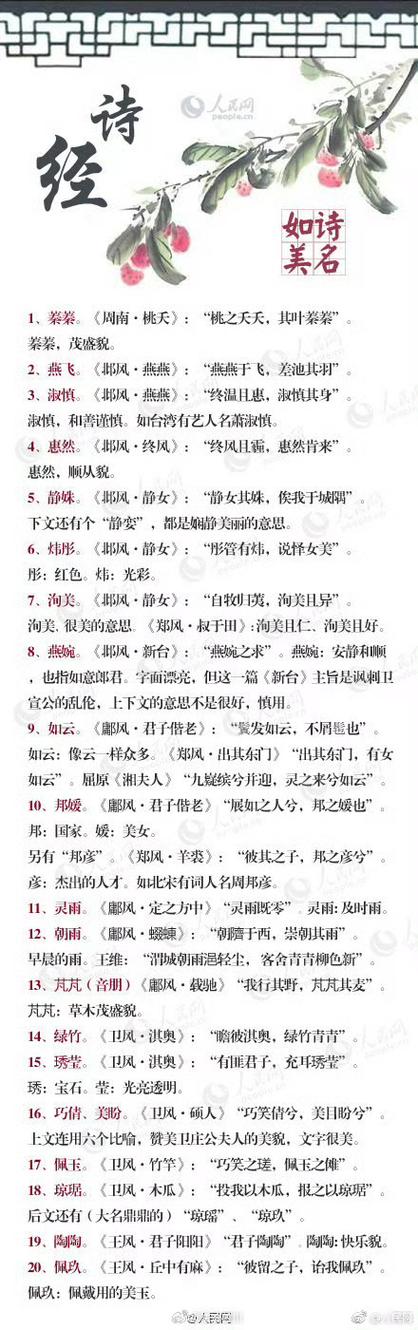 诗
经
人民网
people.cn
如诗
美名
1、蓁蓁。《周南·桃夭》：“桃之夭夭，其叶蓁蓁”。
蓁蓁，茂盛貌。
2、燕飞。《邶风·燕燕》：“燕燕于飞，差池其羽”。
3、淑慎。《邶风·燕燕》：“终温且惠，淑慎其身”。
淑慎，和善谨慎。如台湾有艺人名萧淑慎。
4、惠然。《邶风·终风》：“终风且霾，惠然肯来”。
惠然，顺从貌。
5、静姝。《邶风·静女》：“静女其姝，俟我于城隅”。
下文还有个“静娈”，都是娴静美丽的意思。
6、炜彤。《邶风·静女》：“彤管有炜，说怿女美”。
彤：红色。炜：光彩。
7、洵美。《邶风·静女》：“自牧归荑，洵美且异”。
洵美，很美的意思。《郑风·叔于田》：洵美且仁、洵美且好。
8、燕婉。《邶风·新台》：“燕婉之求”。燕婉：安静和顺
，也指如意郎君。字面漂亮，但这一篇《新台》主旨是讽刺卫
宣公的乱伦，上下文的意思不是很好，慎用。
9、如云。《鄘风·君子偕老》：“鬒发如云，不屑髢也”。
如云：像云一样众多。《郑风·出其东门》“出其东门，有女
如云”。屈原《湘夫人》“九嶷缤兮并迎，灵之来兮如云”。
10、邦媛。《鄘风·君子偕老》“展如之人兮，邦之媛也”。
邦：国家。媛：美女。
另有“邦彦”。《郑风·羊裘》：“彼其之子，邦之彦兮”。
彦：杰出的人才。如北宋有词人名周邦彦。
11、灵雨。《鄘风·定之方中》“灵雨既零”。灵雨：及时雨。
12、朝雨。《鄘风·蝃蝀》：“朝隮于西，崇朝其雨”。
早晨的雨。王维：“渭城朝雨浥轻尘，客舍青青柳色新”。
13、芃芃（音朋）《鄘风·载驰》“我行其野，芃芃其麦”。
芃芃：草木茂盛貌。
14、绿竹。《卫风·淇奥》：“瞻彼淇奥，绿竹青青”。
15、琇莹。《卫风·淇奥》：“有匪君子，充耳琇莹”。
琇：宝石。莹：光亮透明。
16、巧倩、美盼。《卫风·硕人》“巧笑倩兮，美目盼兮”。
上文连用六个比喻，赞美卫庄公夫人的美貌，文字很美。
17、佩玉。《卫风·竹竿》：“巧笑之瑳，佩玉之傩”。
18、琼琚。《卫风·木瓜》：“投我以木瓜，报之以琼琚”。
后文还有（大名鼎鼎的）“琼瑶”、“琼玖”。
19、陶陶。《王风·君子阳阳》“君子陶陶”。陶陶：快乐貌。
20、佩玖。《王风·丘中有麻》：“彼留之子，诒我佩玖”。
佩玖：佩戴用的美玉。
@人民网
@人民网